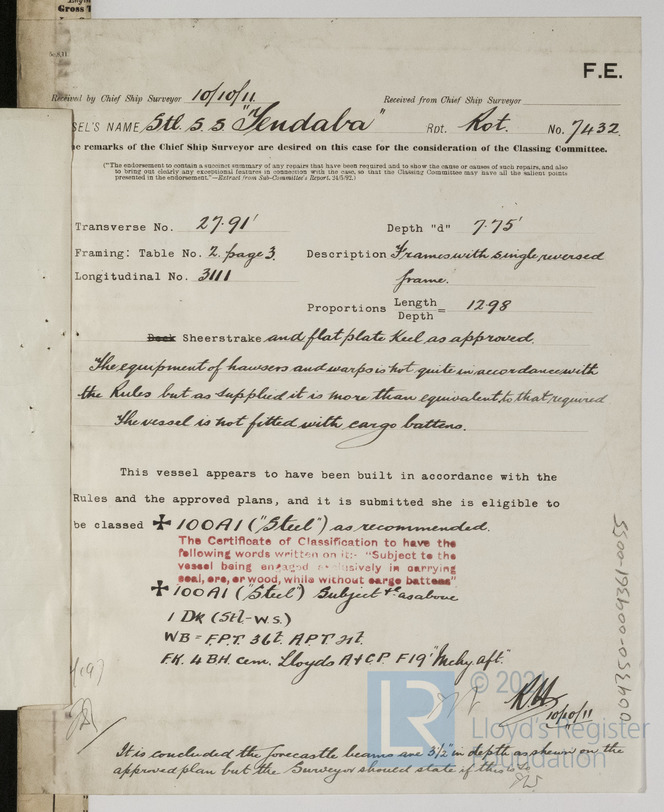 Gross T
F.E.
Received by Chief Ship Surveyor 10/10/11. Received from Chief Ship Surveyor
SEL'S NAME Stl. S. S. "Tendaba" Rpt. Rot. No. 7432.
e remarks of the Chief Ship Surveyor are desired on this case for the consideration of the Classing Committee.
("The endorsement to contain a succinct summary of any repairs that have been required and to show the cause or causes of such repairs, and also
to bring out clearly any exceptional features in connection with the case, so that the Classing Committee may have all the salient points
presented in the endorsement."—Extract from Sub-Committee's Report, 24/5/92.)
Transverse No. 27.91' Depth "d" 7.75'
Framing: Table No. 2. page 3. Description Frames with single reversed
Longitudinal No. 3111 frame.
Proportions Length
Depth = 12.98
Deck Sheerstrake and flat plate Keel as approved.
The equipment of hawsers and warps is not quite in accordance with
the Rules but as supplied it is more than equivalent to that required
The vessel is not fitted with cargo battens.
This vessel appears to have been built in accordance with the
Rules and the approved plans, and it is submitted she is eligible to
be classed ✠ 100A1 ("Steel") as recommended.
The Certificate of Classification to have the
following words written on it:- "Subject to the
vessel being engaged exclusively in carrying
coal, ore, or wood, while without cargo battens"
✠ 100A1 ("Steel") Subject &c as above
1 DK (Stl-W.S.)
WB = F.P.T. 36t. A.P.T. 21t.
F.K. 4 BH. cem. Lloyds A & C.P. F19' Mchy aft.
10/10/11
© 2021
LR Lloyd's Register
Foundation
It is concluded the forecastle beams are 3½" in depth as shewn on the
approved plan but the Surveyor should state if this is so
009350-009361-0055